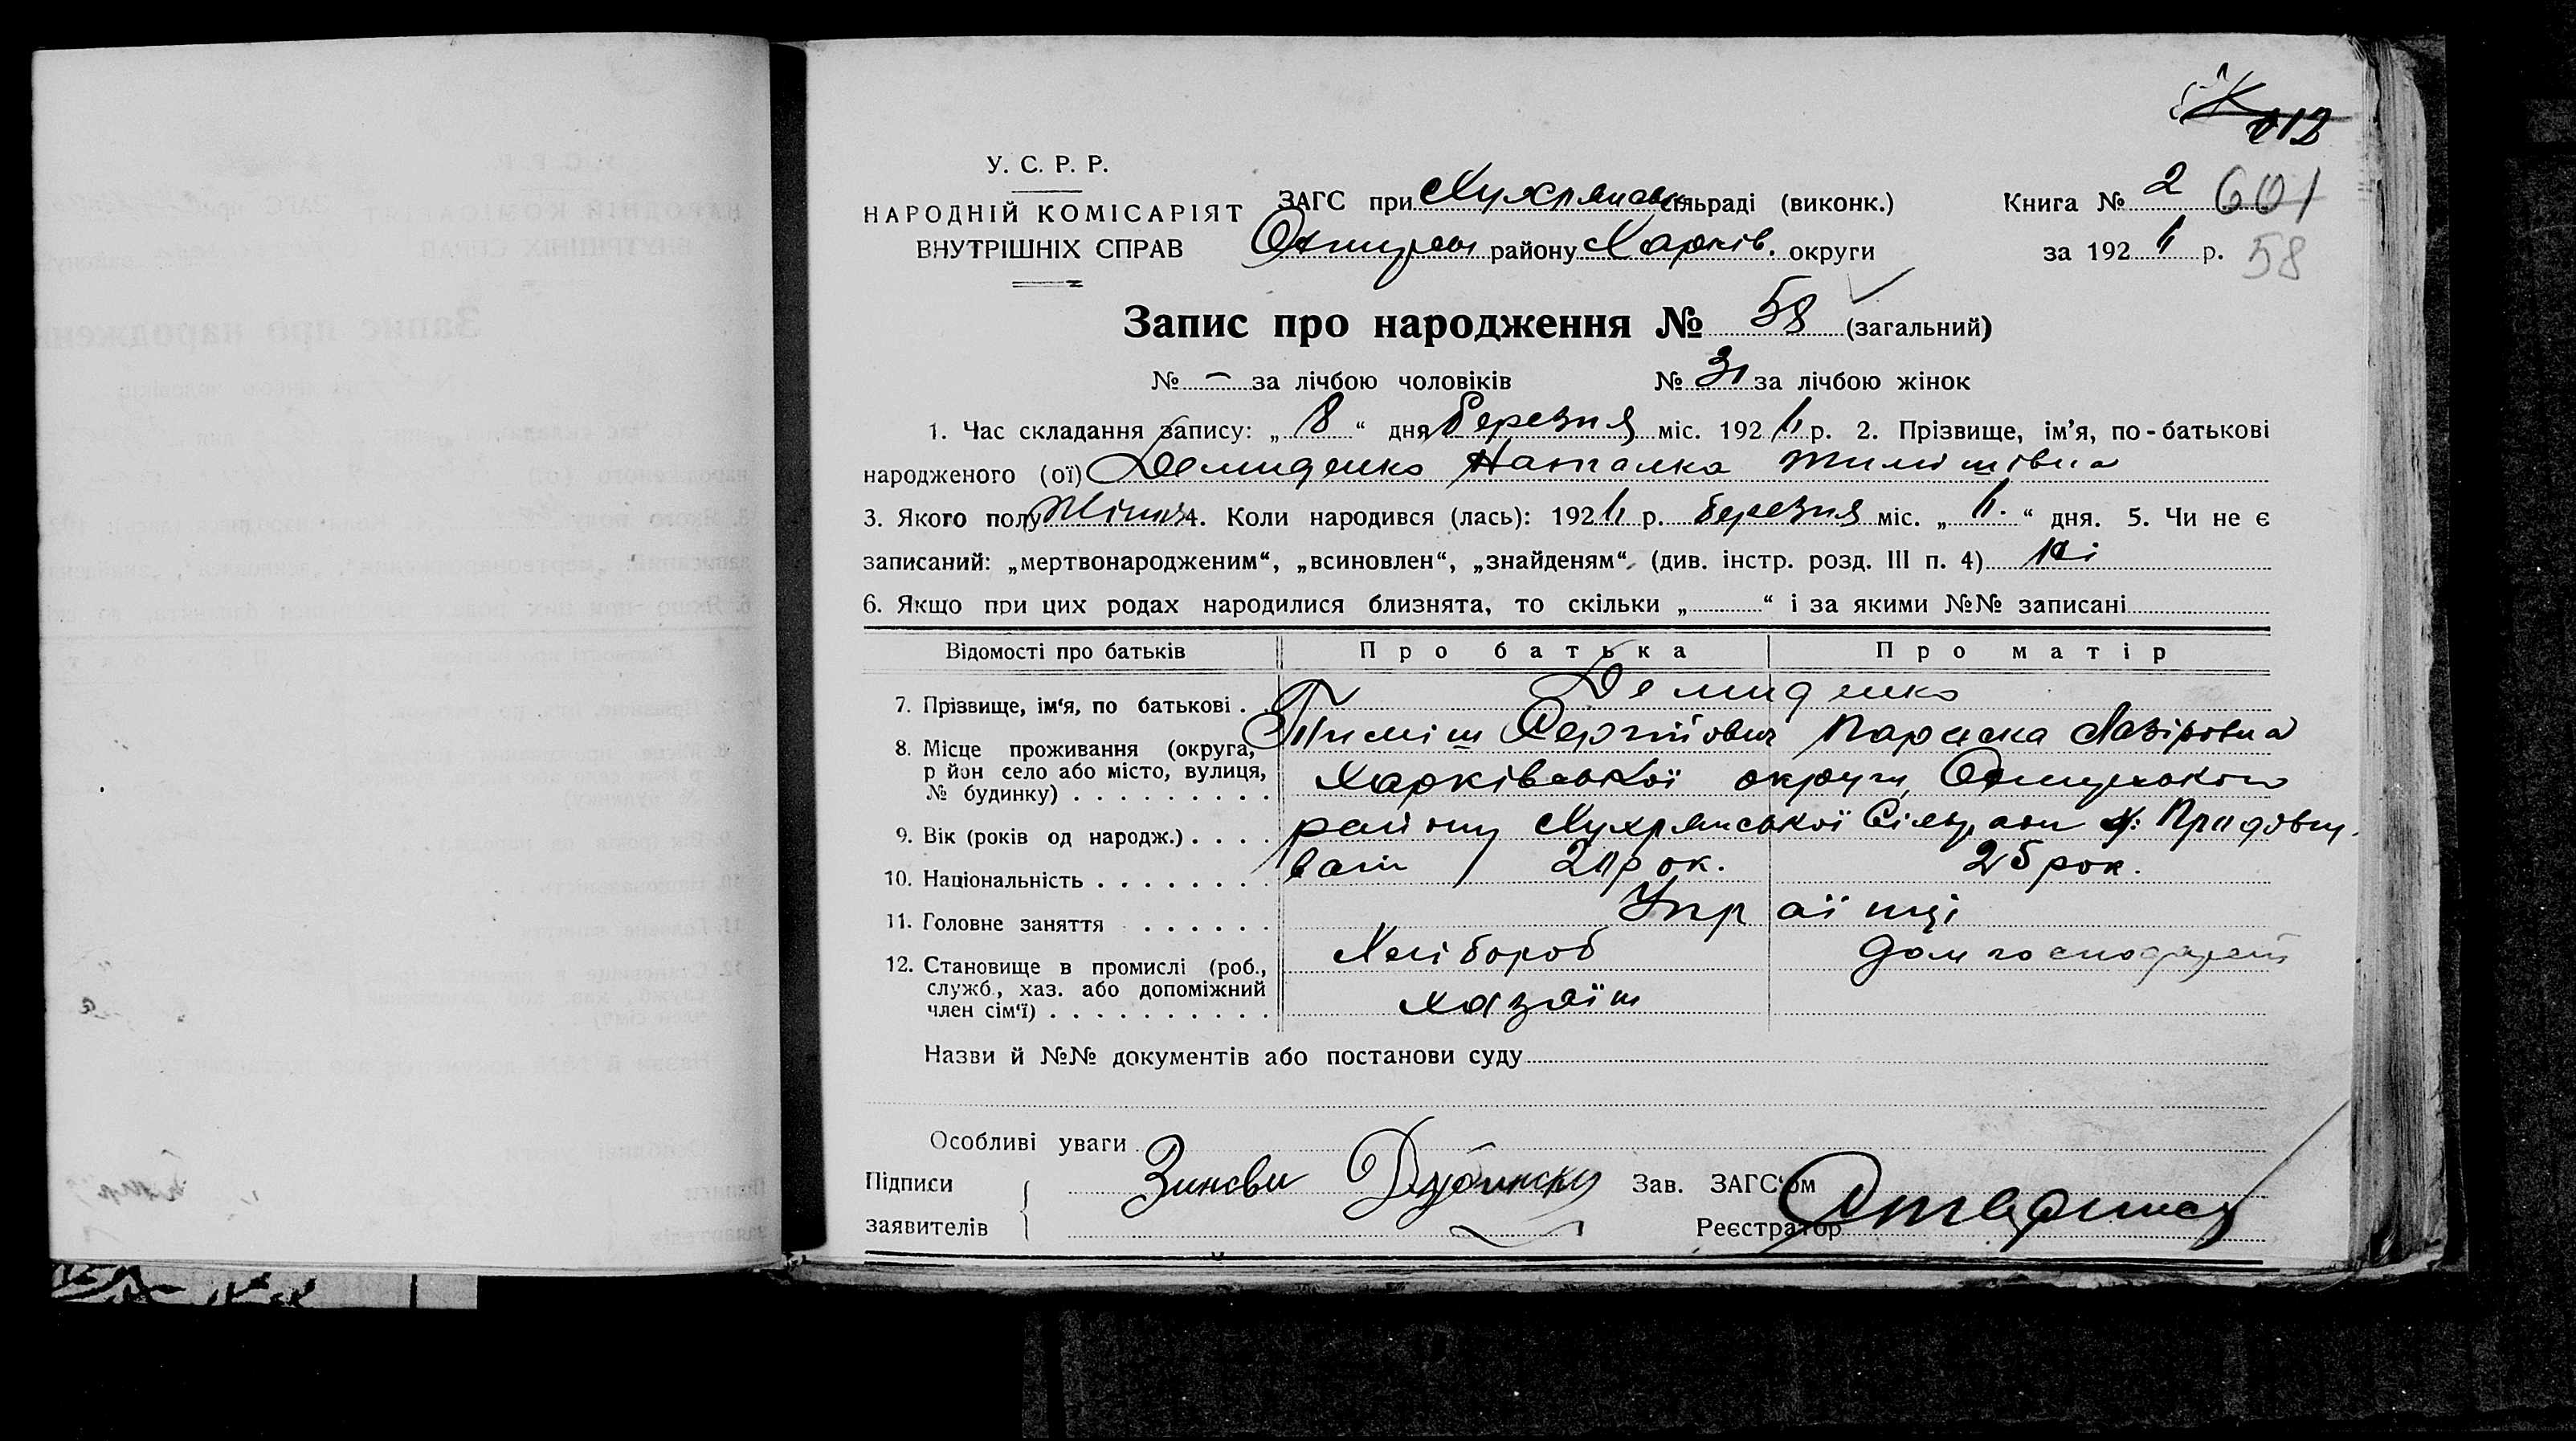 012
У. С. Р. Р.
НАРОДНІЙ КОМІСАРІЯТ
ВНУТРІШНІХ СПРАВ
ЗАГС при сільраді (виконк.)
району Харків. округи
Книга № 2 601
за 192 р. 58
Запис про народження № 58 (загальний)
№ – за лічбою чоловіків № 31 за лічбою жінок
1. Час складання запису: „ 8 “ дня березня міс. 192 р. 2. Прізвище, ім'я, по-батькові
народженого (ої) Демиденко Наталка Тимішівна
3. Якого полу 4. Коли народився (лась): 192 р. березня міс. „ “ дня. 5. Чи не є
записаний: „мертвонародженим“, „всиновлен“, „знайденям“ (див. інстр. розд. III п. 4) ні
6. Якщо при цих родах народилися близнята, то скільки „ “ і за якими №№ записані
Відомості про батьків Про батька Про матір
7. Прізвище, ім'я, по батькові . . Демиденко
Тиміш Сергійович Параска Лазіровна
8. Місце проживання (округа,
р йон село або місто, вулиця,
№ будинку) . . . . . . . . . Харківської округи,
9. Вік (років од народж.) . . . . району Сільради
10. Національність . . . . . . . . рок. 25 рок.
11. Головне заняття . . . . . . Українці
Хлібороб
12. Становище в промислі (роб.,
служб., хаз. або допоміжний
член сім'ї) . . . . . . . . . . хазяїн
Назви й №№ документів або постанови суду
Особливі уваги
Підписи
заявителів
Зав. ЗАГС'ом
Реєстратор